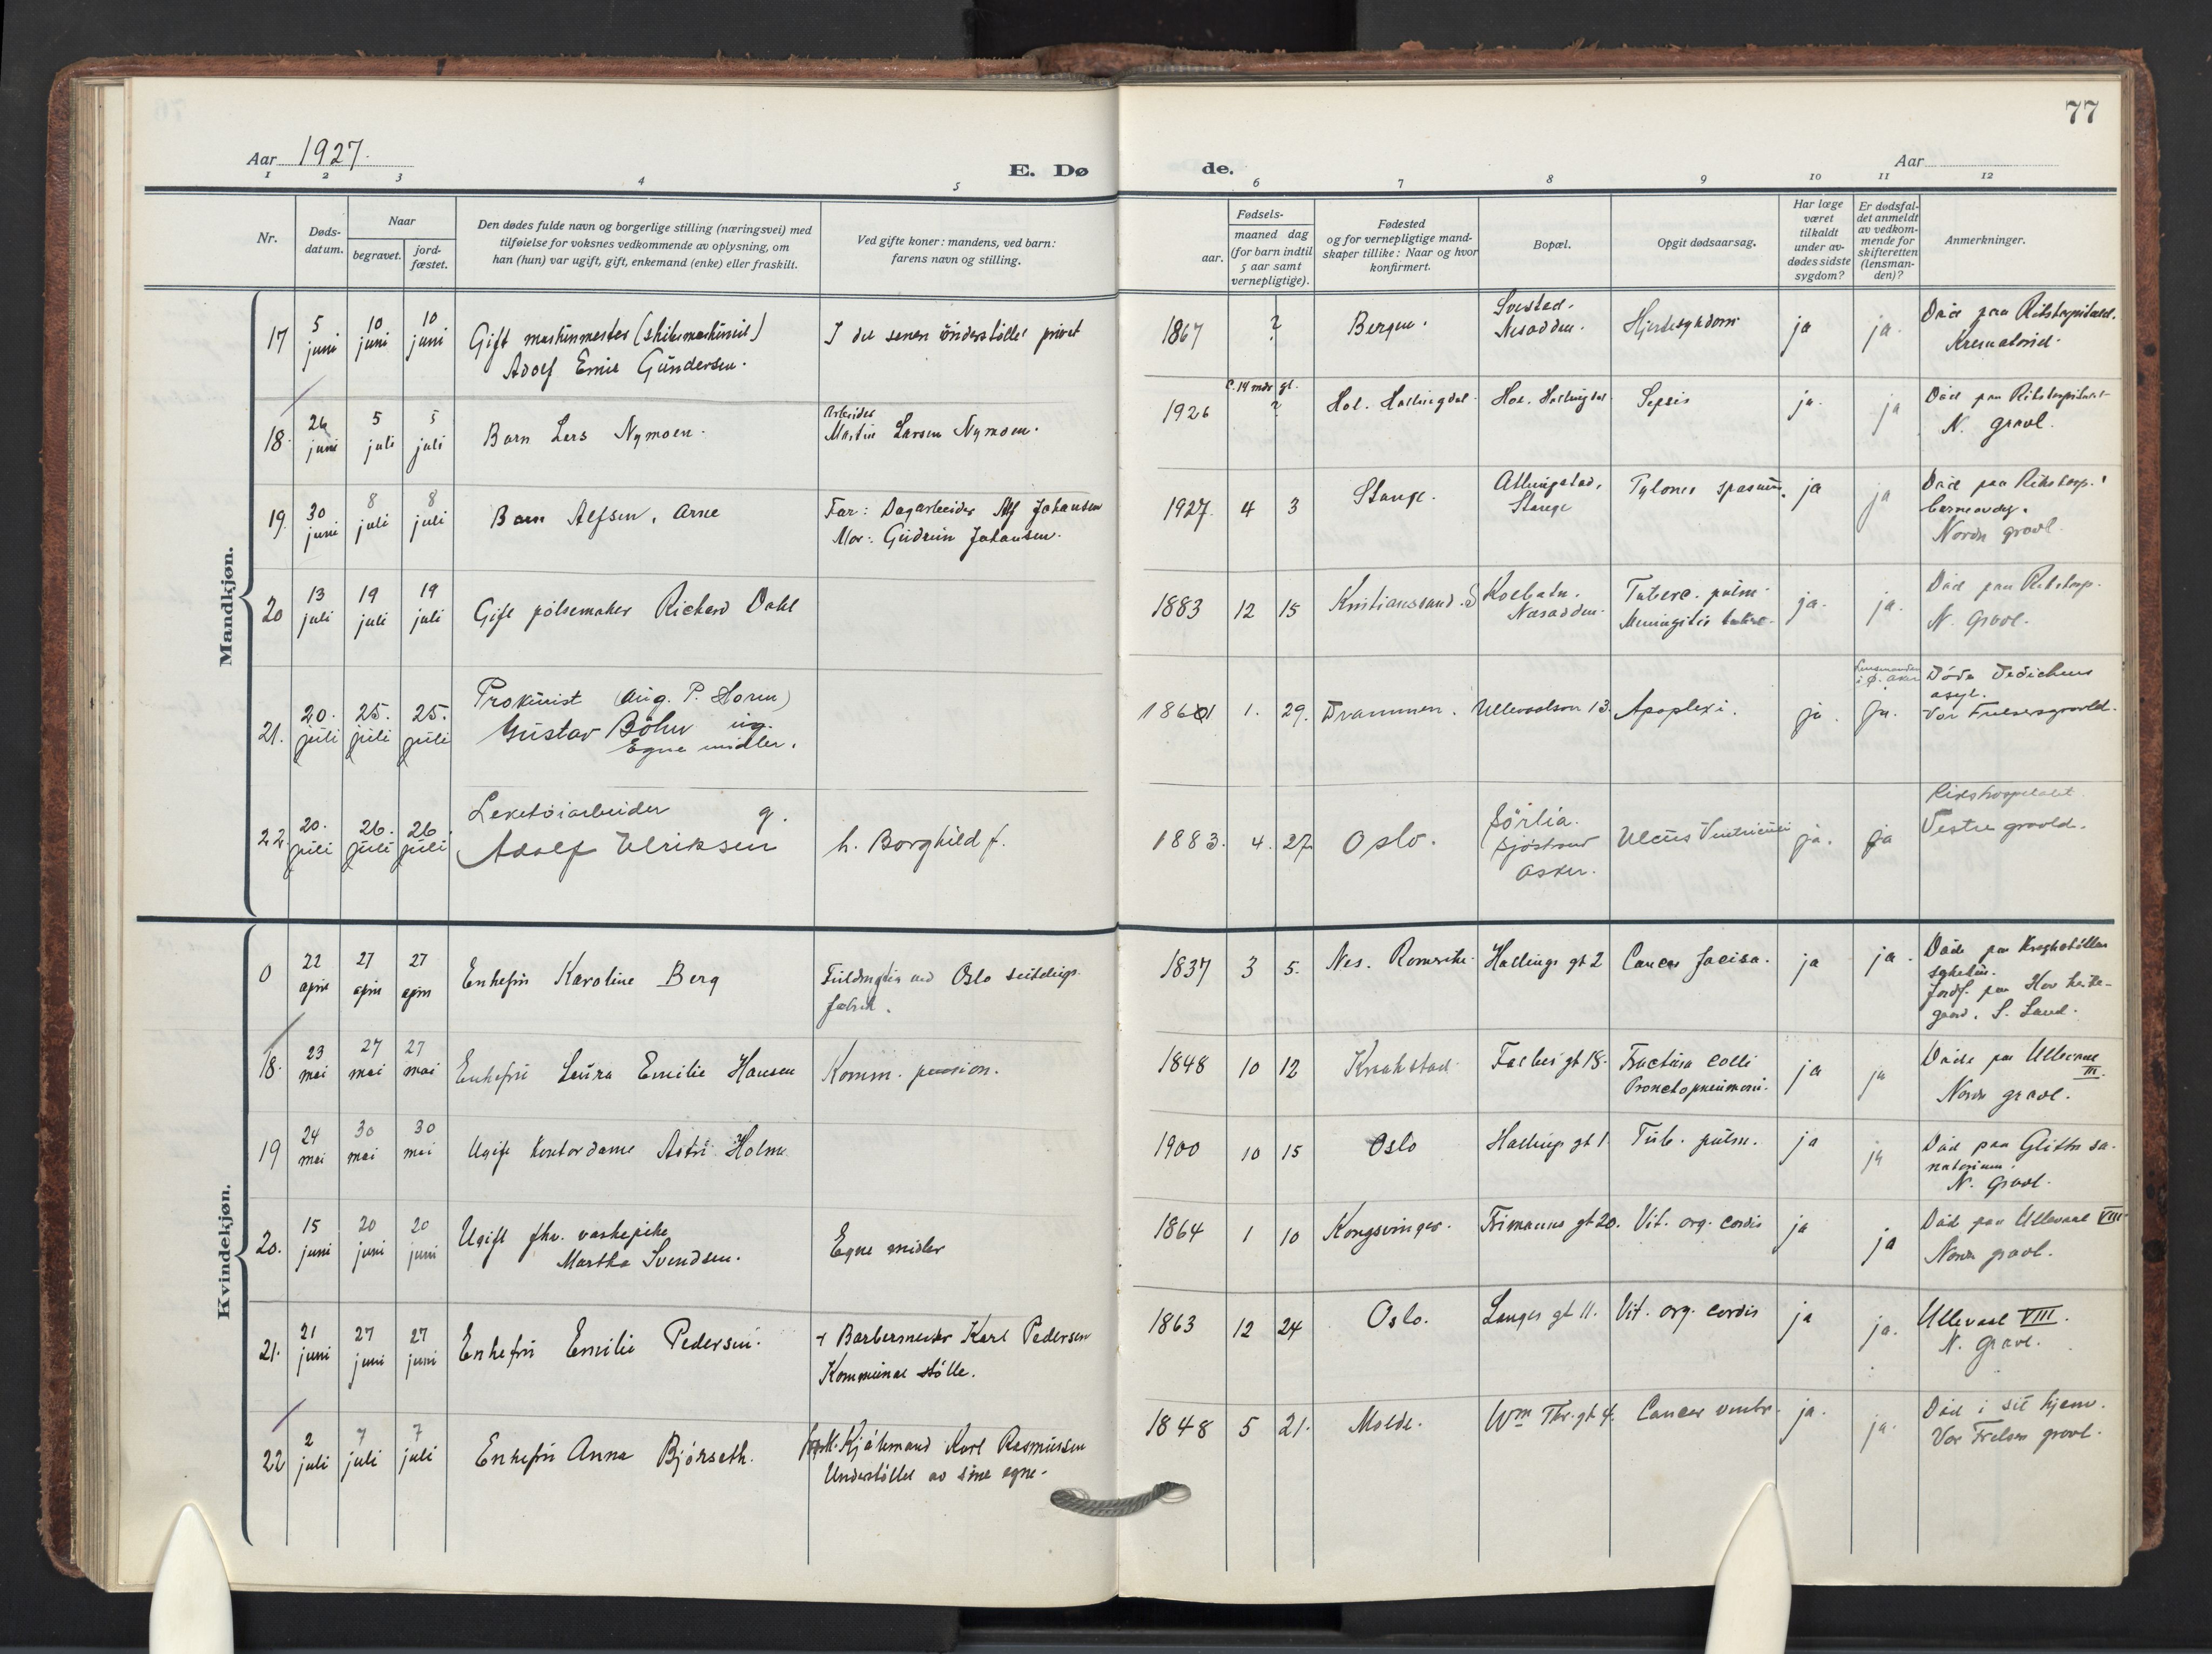 77
Aar 1927.
E. Dø
de.
Aar
1 2 3 4 5 6 7 8 9 10 11 12
Nr.
Døds-
datum.
Naar
begravet.
jord-
fæstet.
Den dødes fulde navn og borgerlige stilling (næringsvei) med
tilføielse for voksnes vedkommende av oplysning, om
han (hun) var ugift, gift, enkemand (enke) eller fraskilt.
Ved gifte koner: mandens, ved barn:
farens navn og stilling.
Fødsels-
aar.
maaned dag
(for barn indtil
5 aar samt
vernepligtige).
Fødested
og for vernepligtige mand-
skaper tillike: Naar og hvor
konfirmert.
Bopæl.
Opgit dødsaarsag.
Har læge
været
tilkaldt
under av-
dødes sidste
sygdom?
Er dødsfal-
det anmeldt
av vedkom-
mende for
skifteretten
(lensman-
den)?
Anmerkninger.
Mandkjøn.
17 5 juni 10 juni 10 juni
Gift maskinmester (skibsmaskinist)
Adolf Emil Gundersen.
I det senere understøttet privat
1867 ? Bergen.
Svestad.
Nesodden.
Hjertesykdom ja ja.
Død paa Rikshospitalet.
Krematoriet.
18. 26 juni 5 juli 5 juli
Barn Lars Nymoen.
Arbeider
Martin Larsen Nymoen.
1926 c. 14 mdr gl. ?
Hol. Hallingdal. Hol. Hallingdal Sepsis ja. ja
Død paa Rikshospitalet
N. gravl.
19. 30 juni 8 juli 8 juli
Barn Alfsen, Arne
Far: Dagarbeider Alf Johansen
Mor: Gudrun Johansen.
1927. 4 3 Stange.
Stange
ja ja
Død paa Rikshosp.
barneavdg.
Nordre gravl.
20 13 juli 19 juli 19 juli
Gift pølsemaker Richard Dahl
1883 12 15 Kristianssand. S
Kolbotn.
Nesodden.
Tuberc. pulm.
Meningitis
ja. ja.
Død paa Rikshosp.
N. Gravl.
21. 20. juli 25. juli 25. juli
Prokurist (Aug. P. Horn)
Gustav Böhn ug.
Egne midler.
1861 1. 29. Drammen. Ullevoldsvn 13. Apoplexi. ja.
Lensmanden
i Ø. Aker
ja.
Døde Dedichens
asyl.
Vor Frelsersgravld.
22. 20. juli 26. juli 26. juli
Leketøiarbeider g.
Adolf Ulriksen
h. Borghild f.
1883. 4. 27. Oslo.
Sörlia.
Sjöstrand
Asker.
Ulcus Ventriculi ja. ja
Rikshospitalet.
Vestre gravld.
Kvindekjøn.
0 22 april 27 april 27 april
Enkefru Karoline Berg
Oslo
fabrik.
1837 3 5. Nes. Romerike. Hallings gt 2 Cancer faciea. ja ja.
Døde paa Krogstøtten
sykehus.
Jordf. paa Hov kirke-
gaard. S. Land.
18. 23 mai 27 mai 27 mai
Enkefru Laura Emilie Hansen
Komm. pension.
1848 10 12 Kraakstad Falbes gt 18.
Fractura colli
Bronchopneumoni.
ja ja
Døde paa Ullevaal
III.
Nordre gravl.
19 24 mai 30 mai 30 mai
Ugift Kontordame Astri Holme
1900 10 15 Oslo Hallings gt 1. Tub. pulm. ja ja
Død paa Glitre sa-
natorium.
N. gravl.
20. 15 juni 20 juni 20 juni
Ugift fhv. vaskepike
Martha Svendsen.
Egne midler
1864 1 10 Kongsvinger. Frimanns gt 20. Vit. org. cordis ja ja
Død paa Ullevaal VIII
Nordre gravl.
21. 21 juni 27 juni 27 juni
Enkefru Emilie Pedersen.
+ Barbermester Karl Pedersen
Kommunal støtte.
1863 12 24 Oslo. Langes gt 11. Vit. org. cordis ja ja.
Ullevaal VIII.
N. gravl.
22 2 juli 7 juli 7 juli
Enkefru Anna Bjørseth.
Kjøbmand Karl Rasmussen
Understøttet av sine egne.
1848 5 21. Molde. Wm Thr. gt 4. Cancer ventr. ja. ja.
Død i sit hjem.
Vor Frelsers gravl.